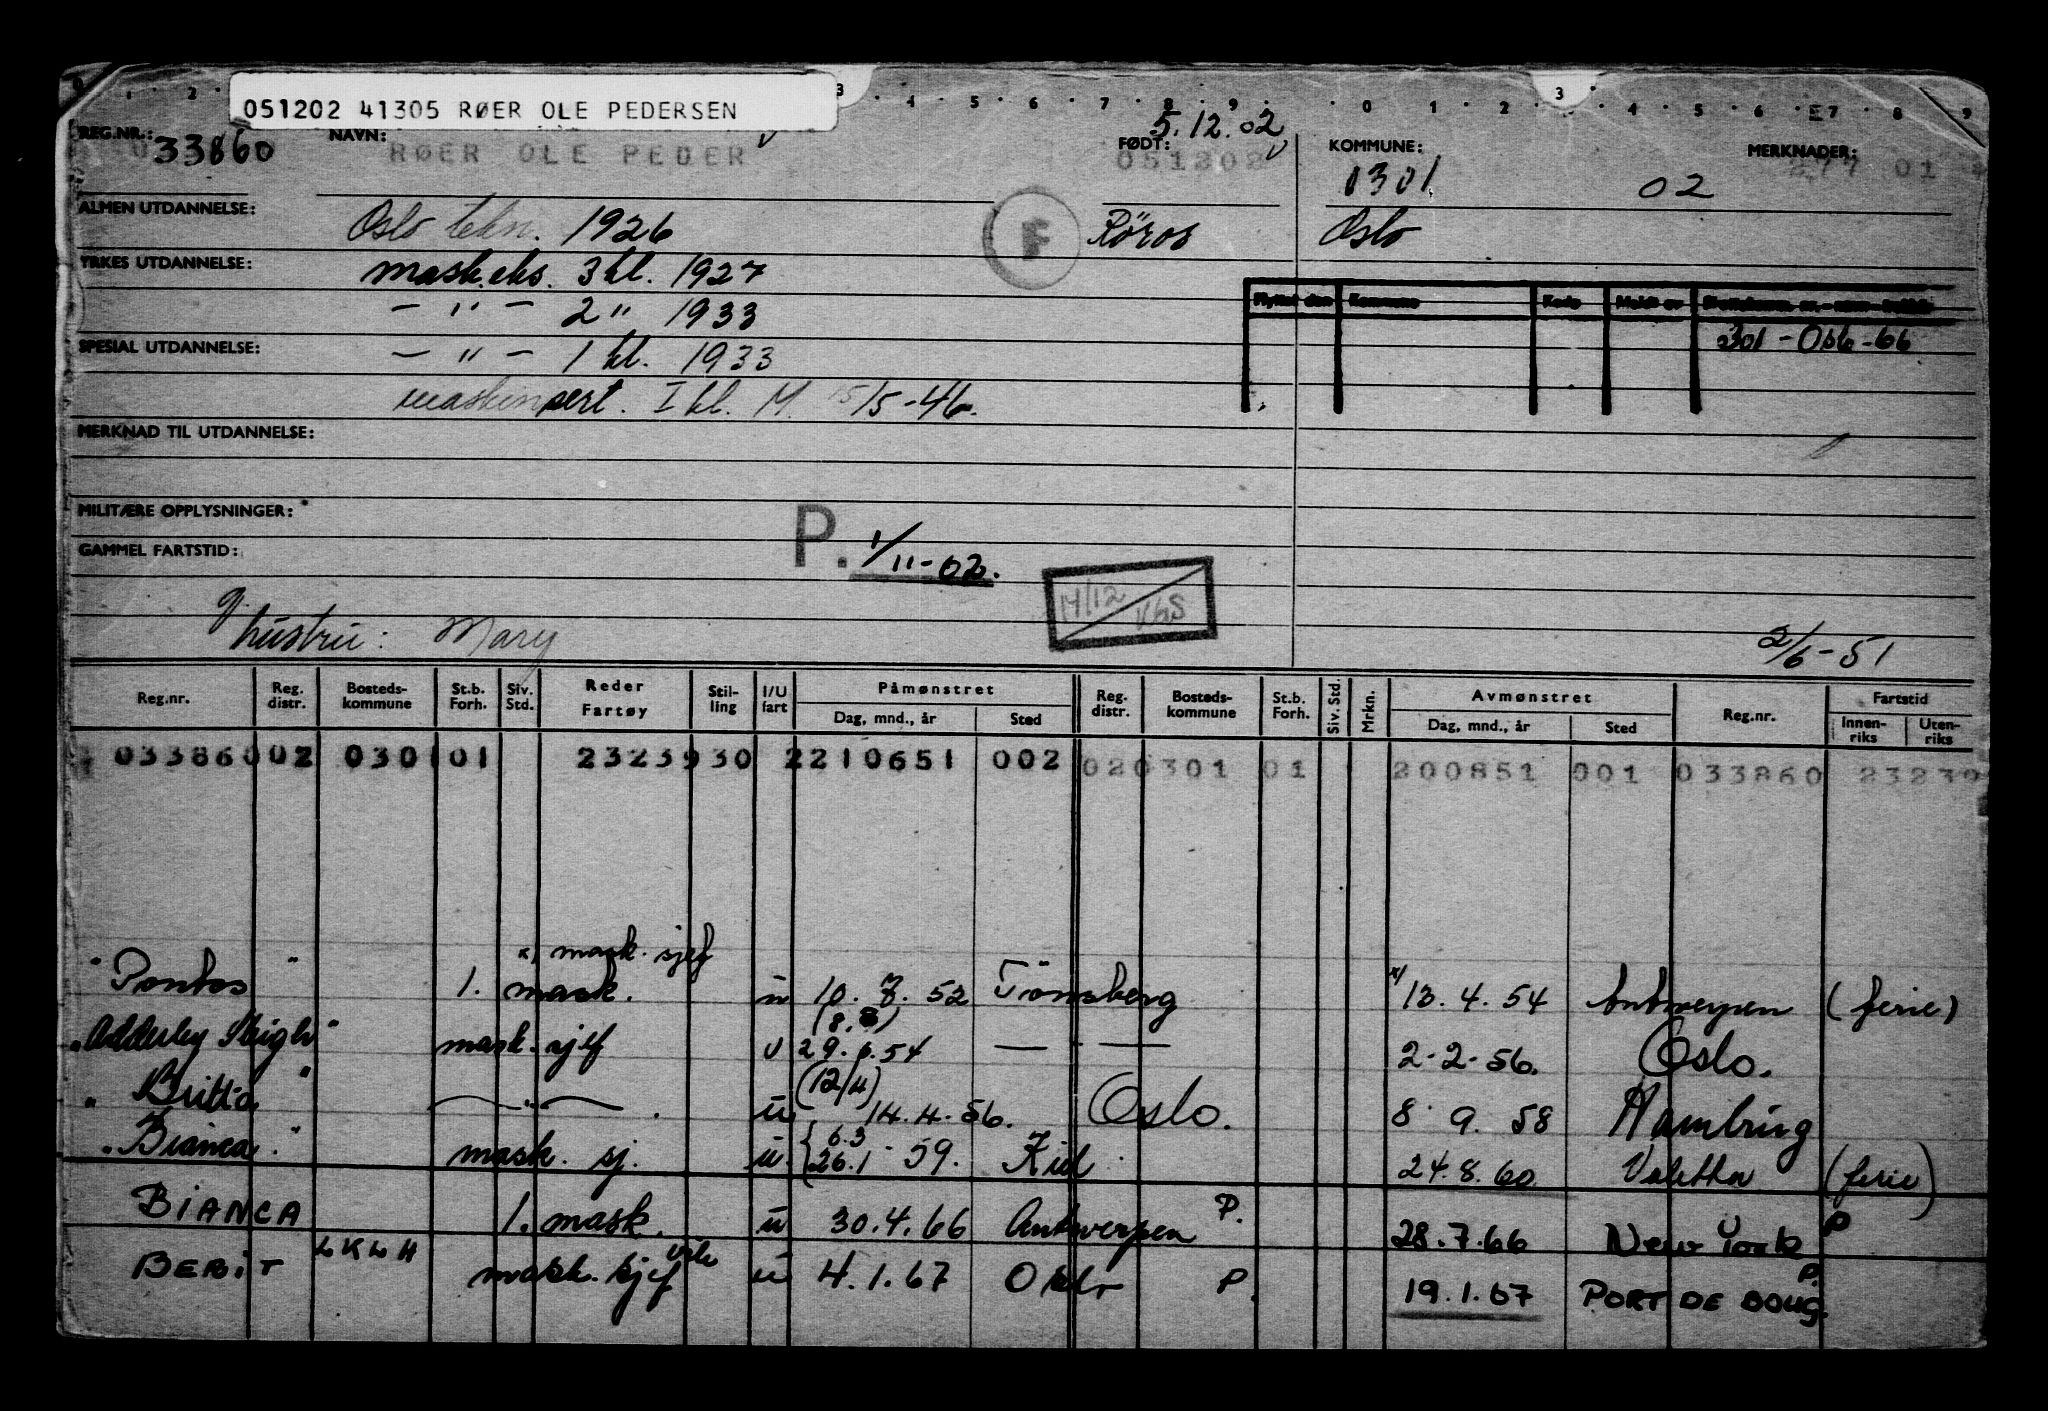 051202 41305 RØER OLE PEDERSEN
REG.NR.: 33860 NAVN: RØER OLE PEDER FØDT: 5.12.02 051202 KOMMUNE: 0301 02 MERKNADER: 01
ALMEN UTDANNELSE: Oslo tekn. 1926 F Röros Oslo
YRKES UTDANNELSE: mask.eks. 3 kl. 1927
— " — 2 " 1933
Flyttet den Kommune Kode Meldt av
SPESIAL UTDANNELSE: — " — 1 kl. 1933 301 - Oslo - 66
maskinsert. I kl. M. 15/5-46.
MERKNAD TIL UTDANNELSE:
MILITÆRE OPPLYSNINGER:
GAMMEL FARTSTID: P. 1/11-62.
14/12
g. hustru: Mary 2/6-51
Reg.nr. Reg. distr. Bosteds-kommune St.b. Forh. Siv. Std. Reder Fartøy Stil-ling I/U fart Påmønstret Dag, mnd., år Sted Reg. distr. Bosteds-kommune St.b. Forh. Siv. Std. Mrkn. Avmønstret Dag, mnd., år Sted Reg.nr. Fartstid Innen-riks Uten-riks
033860 02 0301 01 23239 30 2 210651 002 02 0301 01 200851 001 033860 23239
x) mask. sjef
" Pontos " 1. mask. u 10. 7. 52 Tönsberg x) 13. 4. 54 Antwerpen (ferie)
(8.8)
" Adderley Skigh " mask. sjef u 29. 6. 54 — — 2-2-56. Oslo.
(12/4)
" Britta " — " — . u 14.4.56. Oslo. 8 9. 58 Hamburg
" Bianca " mask. sj. u. { 6.3 26.1 59. Kiel 24.8.60 Valetta (ferie)
BIANCA 1. mask. u 30.4.66 Antwerpen P. 28.7.66 New York P
BERIT LKLH mask. sjef u 4.1.67 Oslo P. 19.1.67 PORT DE BOUG. P.